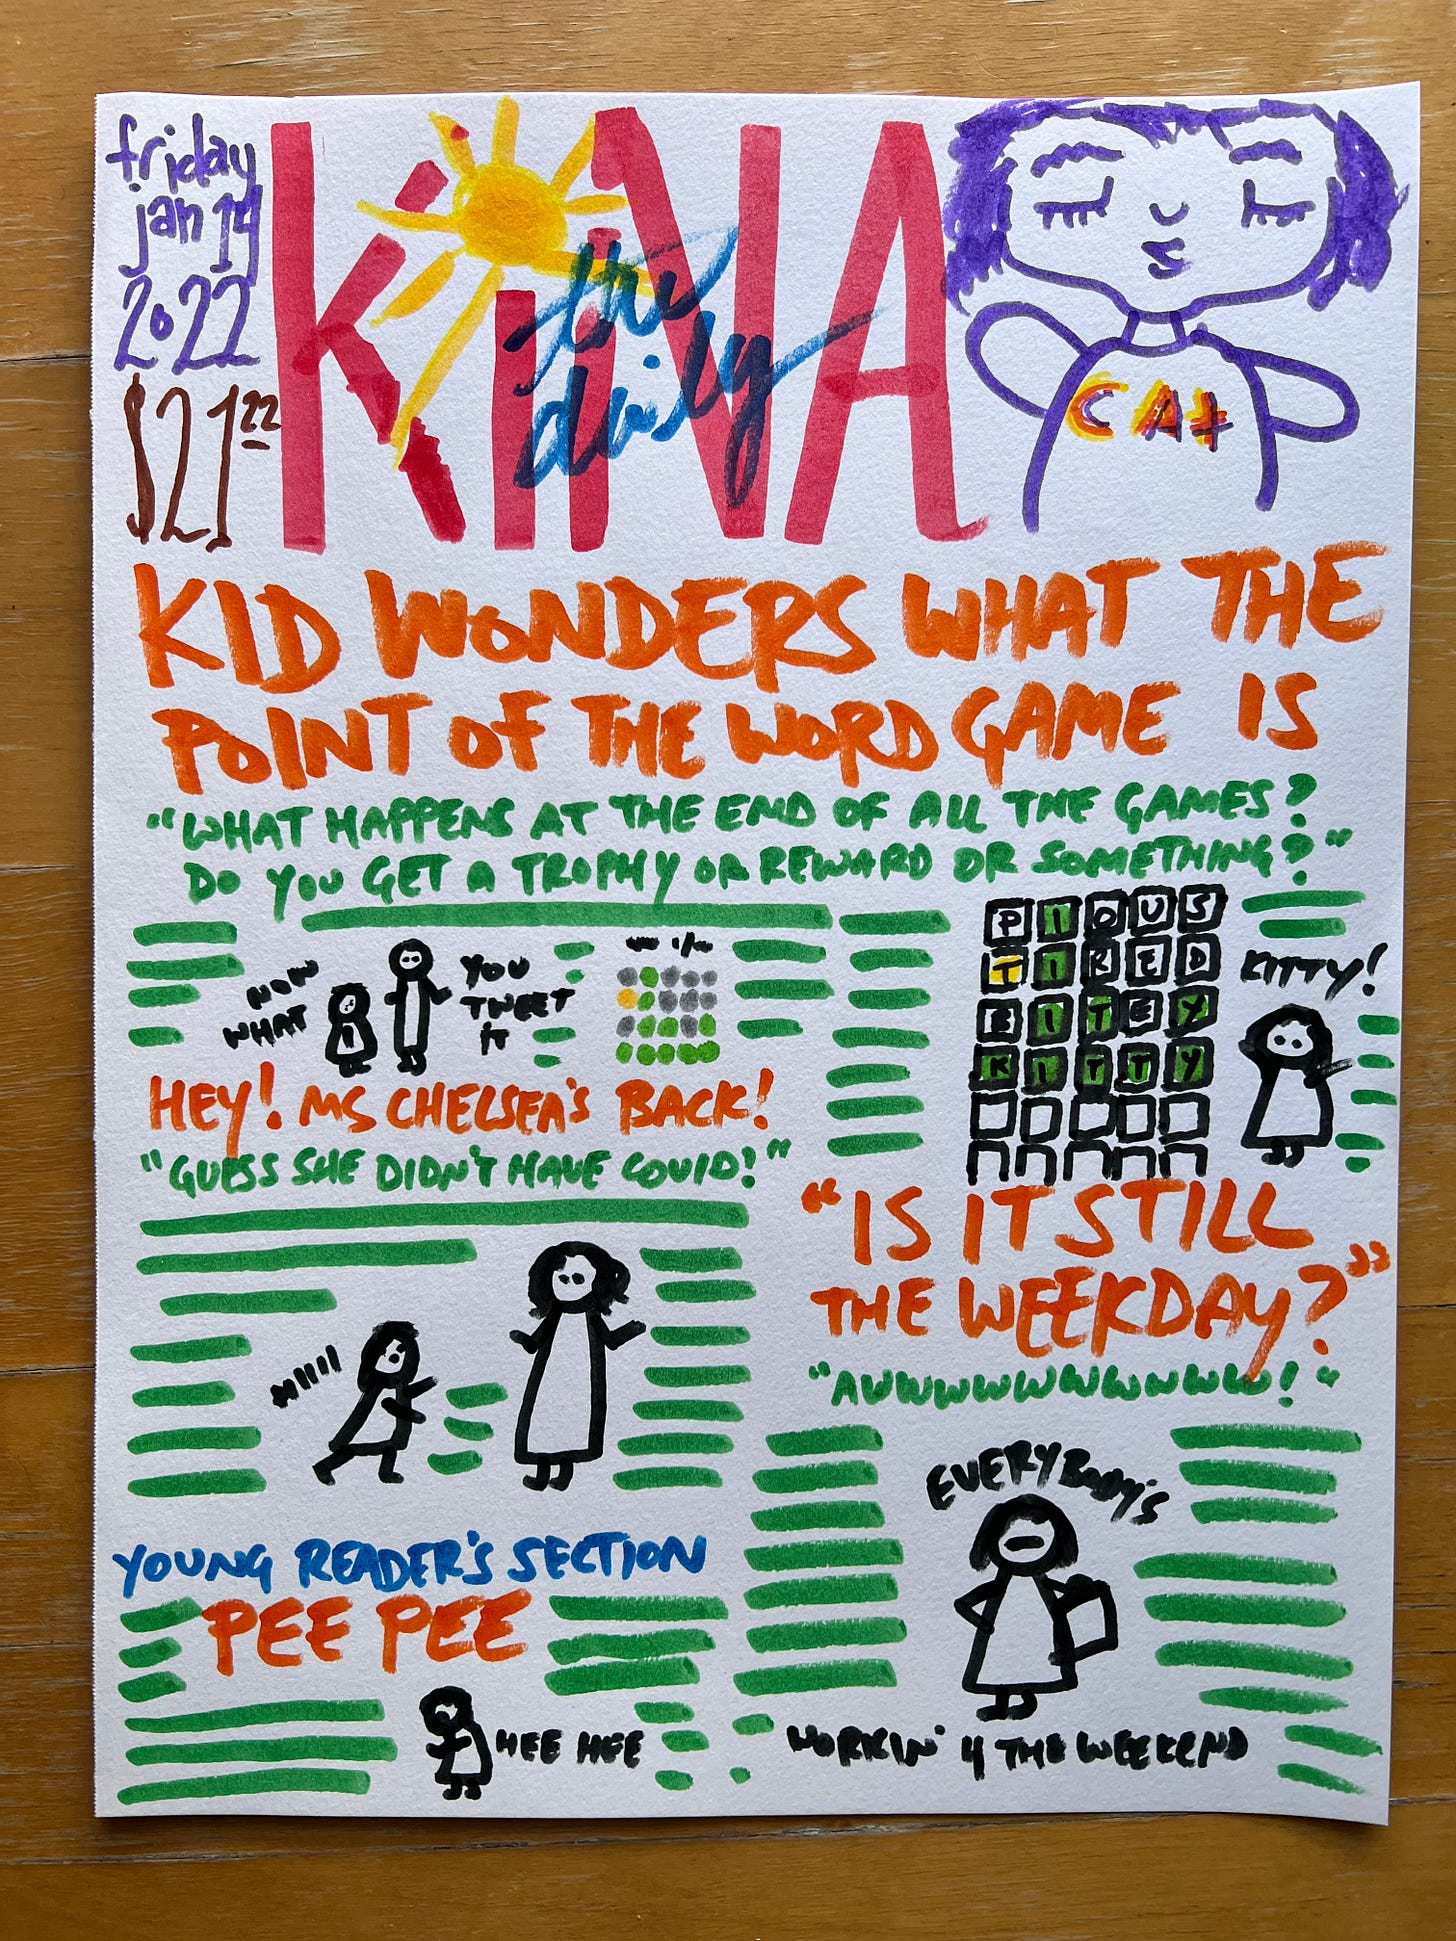 friday
jan 14
2022
$21.22
KiNA
the
daily
CAt
KID WONDERS WHAT THE
POINT OF THE WORD GAME IS
"WHAT HAPPENS AT THE END OF ALL THE GAMES?
DO YOU GET A TROPHY OR REWARD OR SOMETHING?"
NOW
WHAT
YOU
TWEET
IT
PIOUS
TIRED
BITEY
KITTY
KITTY!
HEY! MS CHELSEA'S BACK!
"GUESS SHE DIDN'T HAVE COVID!"
HIIII
"IS IT STILL
THE WEEKDAY?"
"AWWWWWWWWWW!"
EVERYBODY'S
WORKIN' 4 THE WEEKEND
YOUNG READER'S SECTION
PEE PEE
HEE HEE